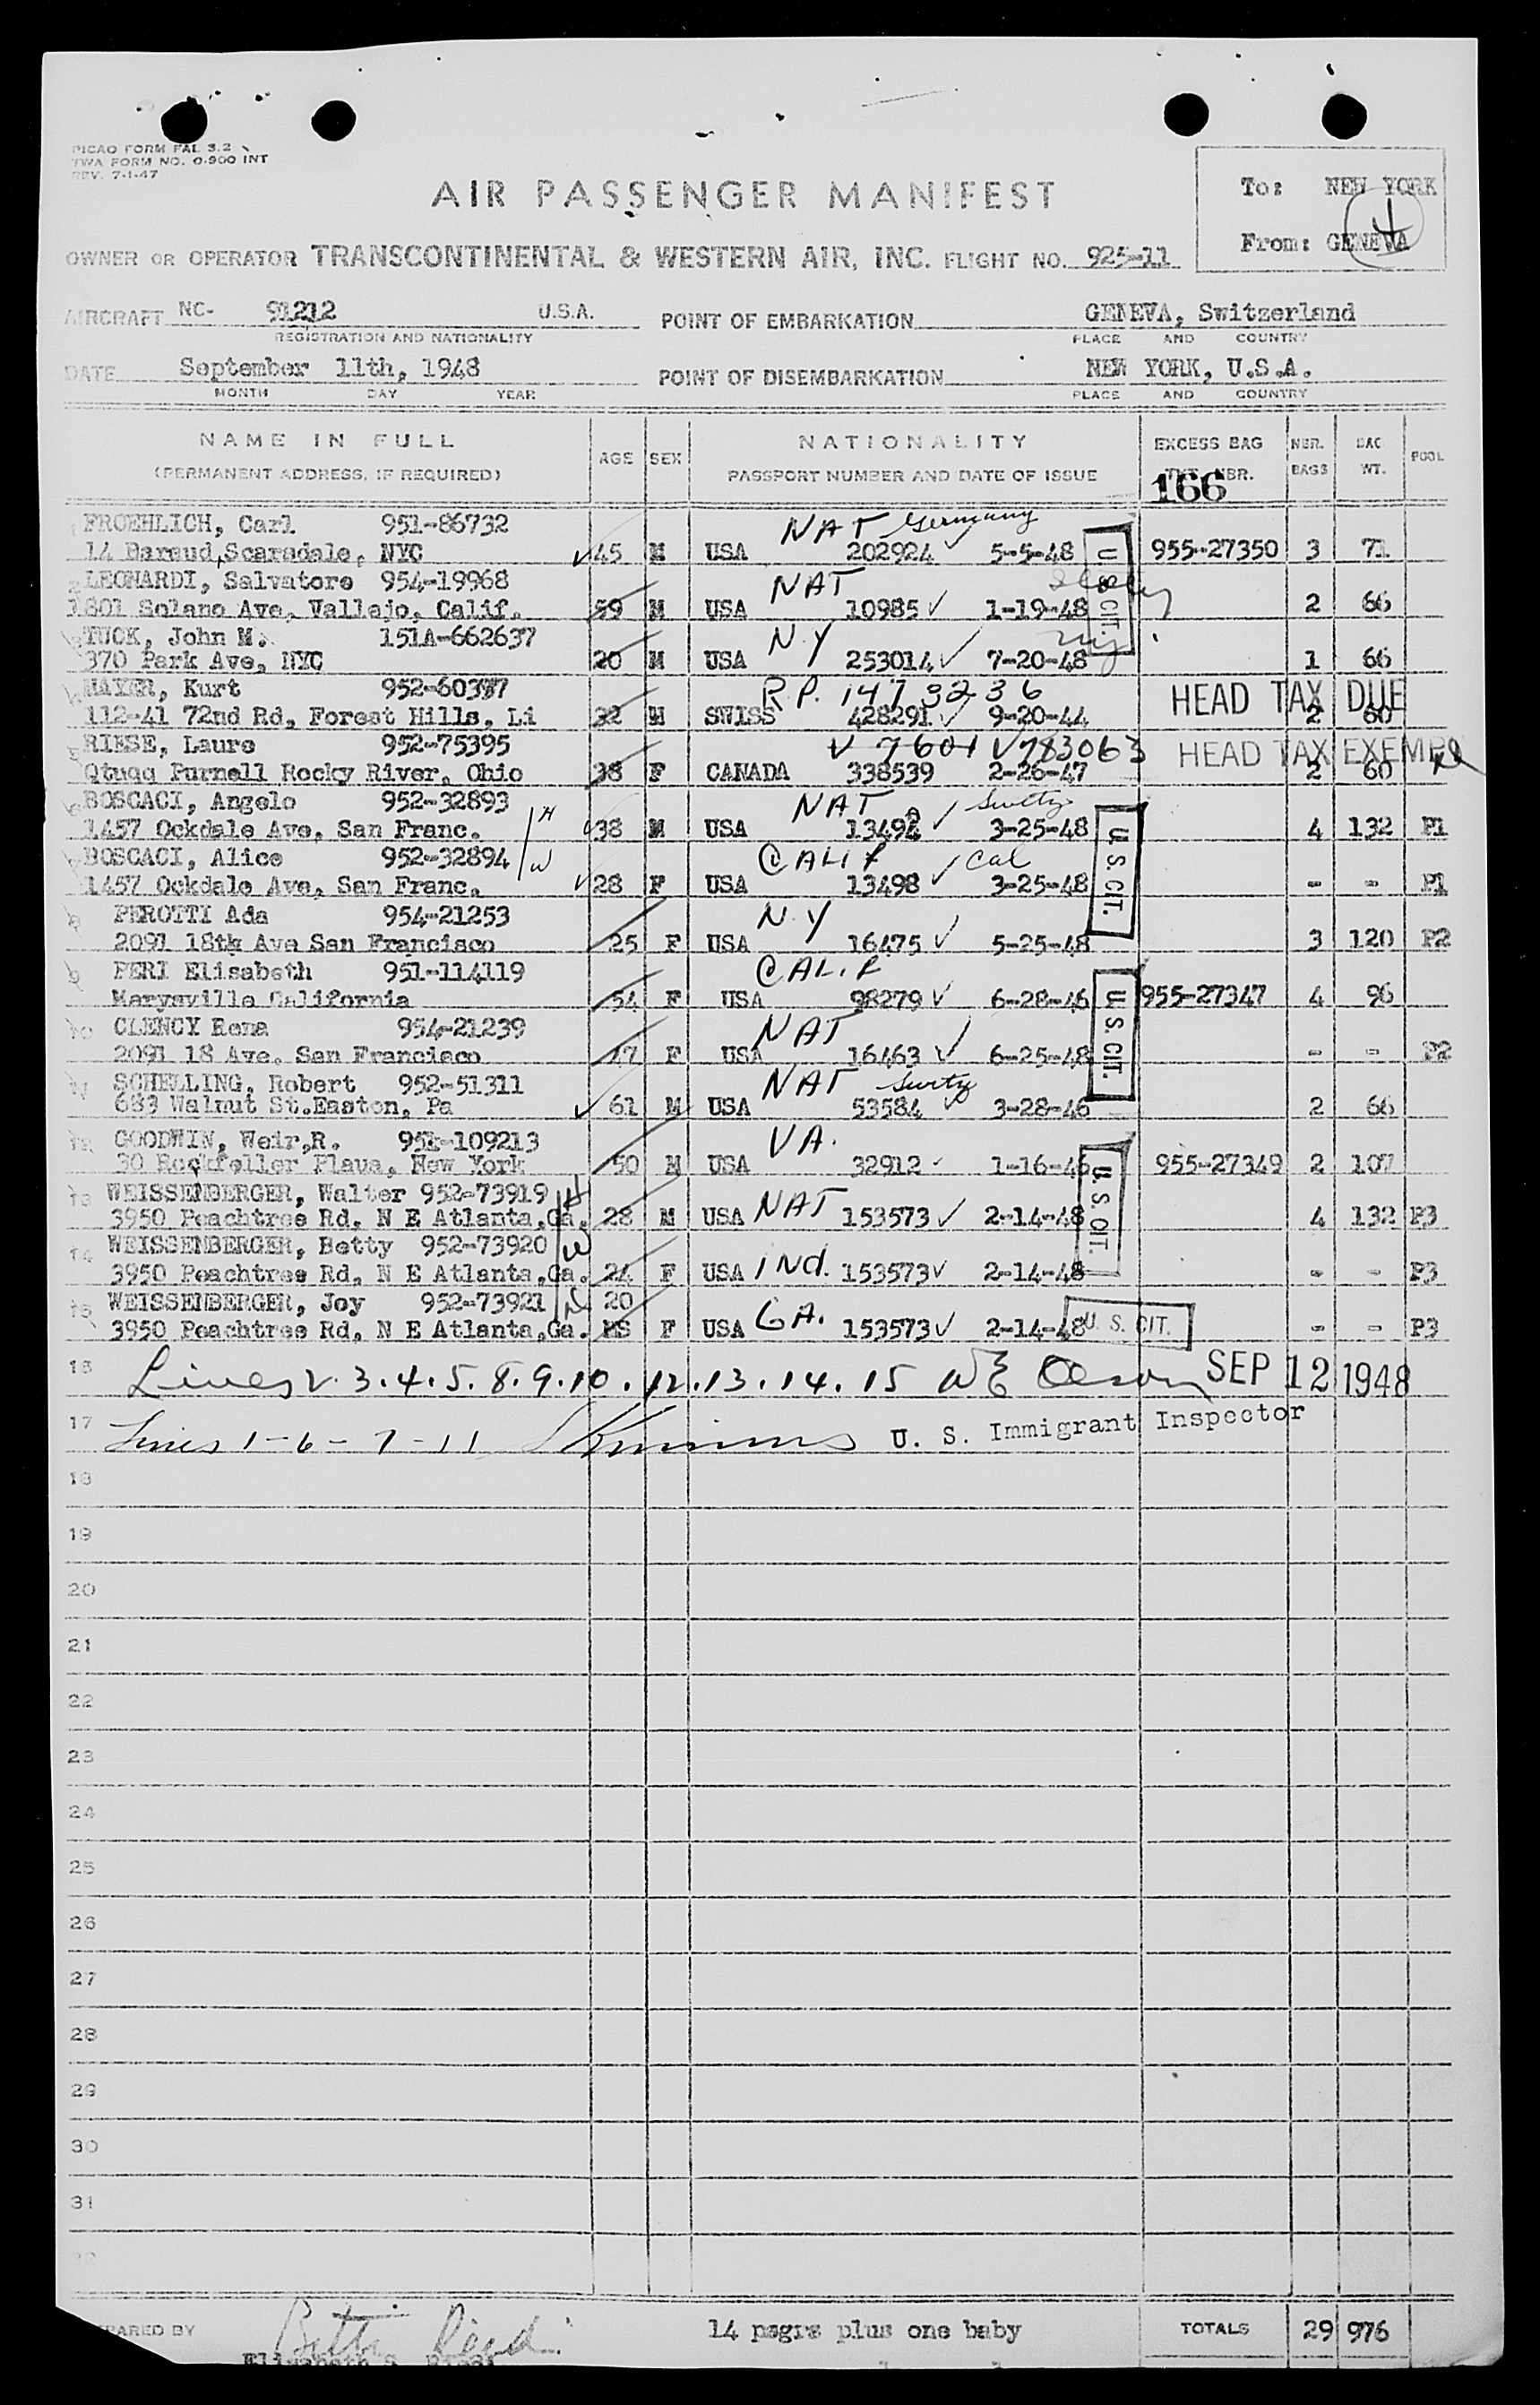 PICAO FORM FAL 3.2
TWA FORM NO. O-900 INT
REV. 7-1-47
AIR PASSENGER MANIFEST
To: NEW YORK
From: GENEVA
OWNER OR OPERATOR TRANSCONTINENTAL & WESTERN AIR, INC. FLIGHT NO. 925-11
AIRCRAFT NC- 91212 U.S.A. POINT OF EMBARKATION GENEVA, Switzerland
REGISTRATION AND NATIONALITY PLACE AND COUNTRY
DATE September 11th, 1948 POINT OF DISEMBARKATION NEW YORK, U.S.A.
MONTH DAY YEAR PLACE AND COUNTRY
NAME IN FULL AGE SEX NATIONALITY EXCESS BAG NBR. BAG POOL
(PERMANENT ADDRESS, IF REQUIRED) PASSPORT NUMBER AND DATE OF ISSUE NBR. BAGS WT.
166
FROEHLICH, Carl 951-86732 NAT Germany
14 Baraud, Scarsdale, NYC 45 M USA 202924 5-5-48 955-27350 3 71
U S CIT.
LEONARDI, Salvatore 954-19968 NAT
1801 Solano Ave, Vallejo, Calif. 59 M USA 10985 1-19-48 2 66
TUCK, John M. 151A-662637 N.Y
370 Park Ave, NYC 20 M USA 253014 7-20-48 NY 1 66
MAYER, Kurt 952-60377 R.P. 1473236 HEAD TAX DUE
112-41 72nd Rd, Forest Hills, Li 32 M SWISS 428291 9-20-44 2 60
RIESE, Laure 952-75395 V 7601 V783063 HEAD TAX EXEMPT
Qtugg Purnell Rocky River, Ohio 38 F CANADA 338539 2-26-47 2 60
BOSCACI, Angelo 952-32893 H NAT Switz
1457 Ockdale Ave, San Franc. 38 M USA 13494 3-25-48 4 132 P1
U.S. CIT.
BOSCACI, Alice 952-32894 W CALIF Cal
1457 Ockdale Ave, San Franc. 28 F USA 13498 3-25-48 - - P1
PEROTTI Ada 954-21253 N.Y
2091 18th Ave San Francisco 25 F USA 16475 5-25-48 3 120 P2
PERI Elisabeth 951-114119 CALIF
Marysville California 54 F USA 98279 6-28-46 955-27347 4 96
U S CIT.
CLENCY Rena 954-21239 NAT
2091 18 Ave. San Francisco 47 F USA 16463 6-25-48 - - P2
SCHELLING, Robert 952-51311 NAT Switz
683 Walnut St.Easton, Pa 61 M USA 53584 3-28-46 2 66
GOODWIN, Weir,R. 951-109213 VA.
30 Rockfeller Plaua, New York 50 M USA 32912 1-16-46 955-27349 2 107
U.S. CIT.
13 WEISSENBERGER, Walter 952-73919 H
3950 Peachtree Rd, N E Atlanta,Ga. 28 M USA NAT 153573 2-14-48 4 132 P3
14 WEISSENBERGER, Betty 952-73920 W
3950 Peachtree Rd, N E Atlanta,Ga. 24 F USA IND. 153573 2-14-48 - - P3
15 WEISSENBERGER, Joy 952-73921 20
3950 Peachtree Rd, N E Atlanta,Ga. MS F USA GA. 153573 2-14-48 U. S. CIT. - - P3
16 Lines 2.3.4.5.8.9.10.12.13.14.15 WE Olson SEP 12 1948
17 Lines 1-6-7-11 U. S. Immigrant Inspector
18
19
20
21
22
23
24
25
26
27
28
29
30
31
PARED BY 14 psgrs plus one baby TOTALS 29 976